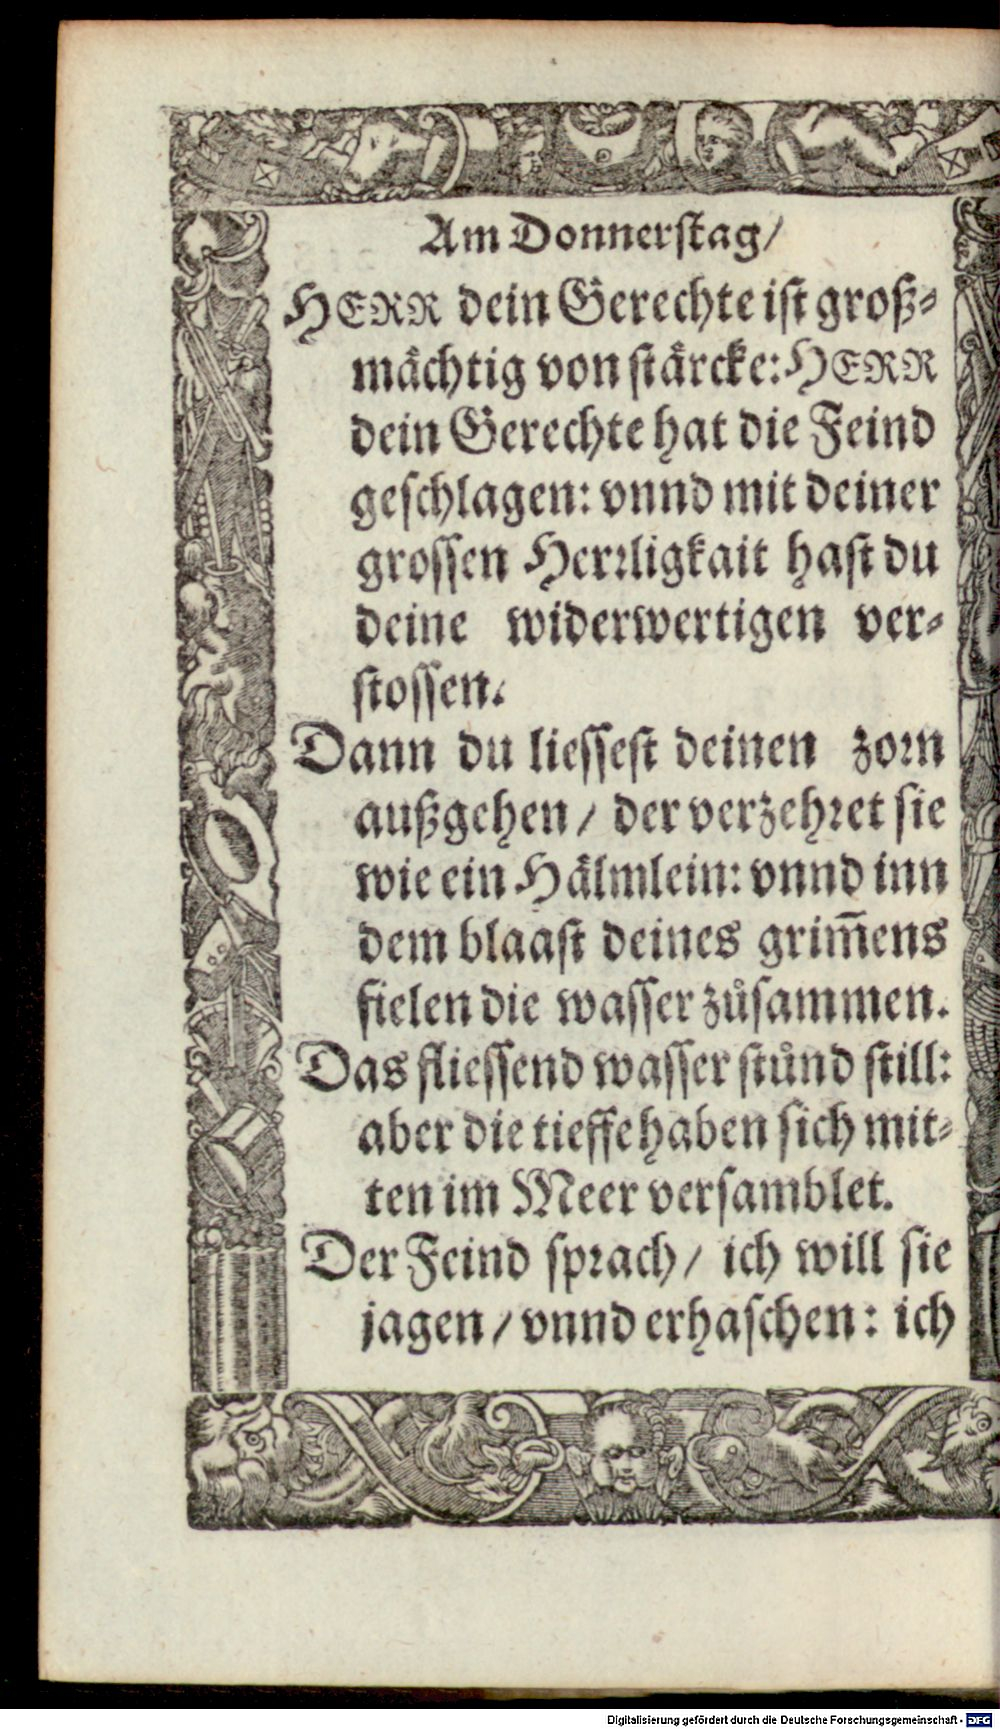 Am Donnerstag/
HERR dein Gerechte ist groß-
mächtig von stärcke: HERR
dein Gerechte hat die Feind
geschlagen: vnnd mit deiner
grossen Herrligkait hast du
deine widerwertigen ver-
stossen.
Dann du liessest deinen zorn
außgehen / der verzehret sie
wie ein Hälmlein: vnnd inn
dem blaast deines grim̅ens
fielen die wasser zůsammen.
Das fliessend wasser stůnd still:
aber die tieffe haben sich mit-
ten im Meer versamblet.
Der Feind sprach / ich will sie
jagen / vnnd erhaschen: ich
Digitalisierung gefördert durch die Deutsche Forschungsgemeinschaft - DFG